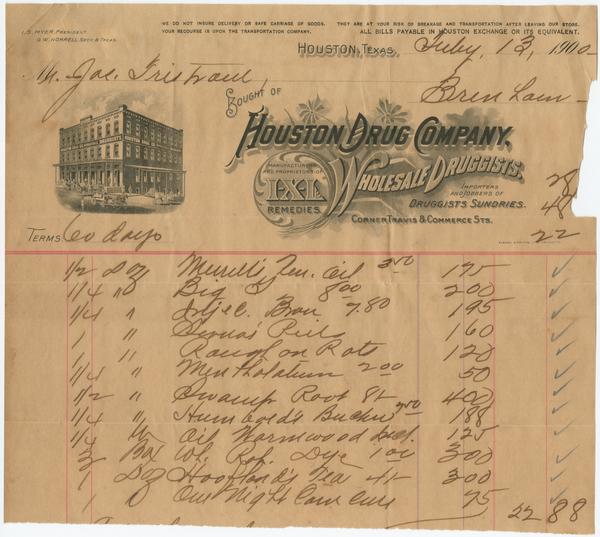 I.S. MYER, PRESIDENT
G.W. HORRELL, SECY & TREAS.
WE DO NOT INSURE DELIVERY OR SAFE CARRIAGE OF GOODS. THEY ARE AT YOUR RISK OF BREAKAGE AND TRANSPORTATION AFTER LEAVING OUR STORE.
YOUR RECOURSE IS UPON THE TRANSPORTATION COMPANY. ALL BILLS PAYABLE IN HOUSTON EXCHANGE OR ITS EQUIVALENT.
HOUSTON, TEXAS. July, 13, 1900
M. Jos. Tristram,
Brenham
BOUGHT OF
HOUSTON DRUG COMPANY,
WHOLESALE DRUGGISTS.
MANUFACTURERS AND PROPRIETORS OF
I.X.L.
REMEDIES.
IMPORTERS AND JOBBERS OF
DRUGGISTS SUNDRIES.
CORNER TRAVIS & COMMERCE STS.
28
48
22
TERMS 60 days
1/2 Doz Merrell's Pen. Oil 3.50 175
1/4 " Big G 8.00 200
1/4 " Injec. Brou 7.80 195
1 " Pills 160
1 " Rough on Rats 120
1/4 " Mentholatum 2.00 50
1/2 " Swamp Root 8- 400
1/4 " Buchu 7.50 188
1/4 " Oil Wormwood 125
3 Box Wh. Rob. Dye 1.00 300
1 Doz Hoofland's Tea 4- 300
1 " One Night Corn Cure 75
22 88